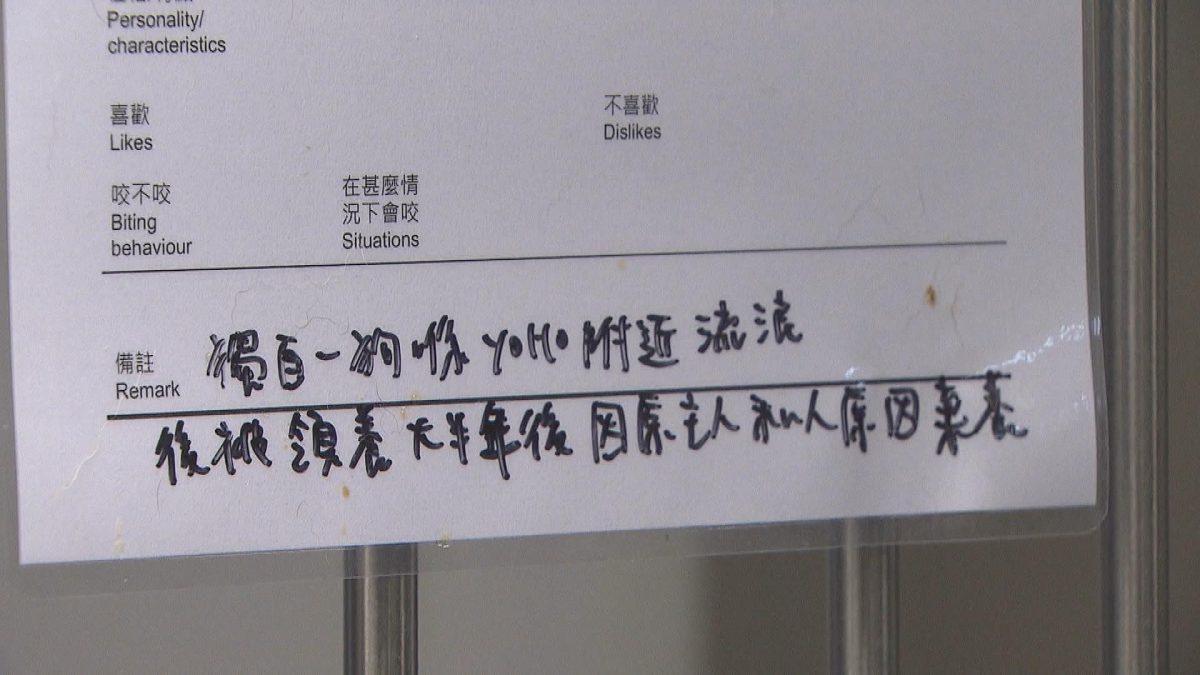 Personality/
characteristics
喜歡
Likes
不喜歡
Dislikes
咬不咬
Biting
behaviour
在甚麼情
況下會咬
Situations
備註
Remark
獨自一狗喺 YOHO 附近流浪
後被領養大半年後因原主人私人原因棄養